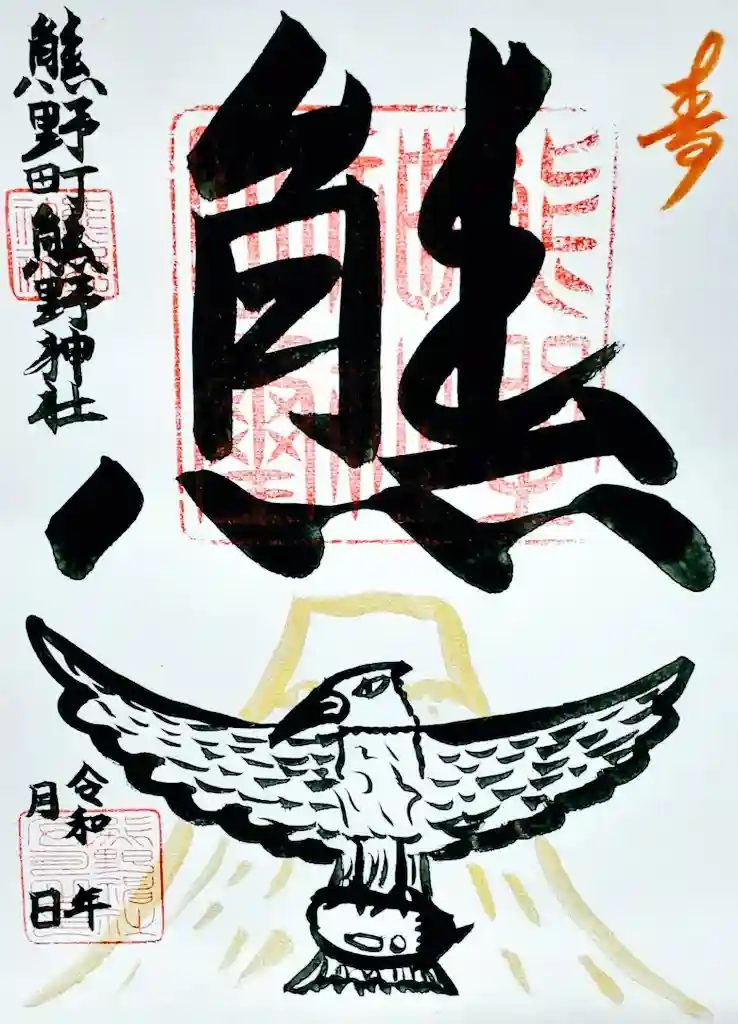 寿
熊
熊野町熊野神社
令和 年
月 日